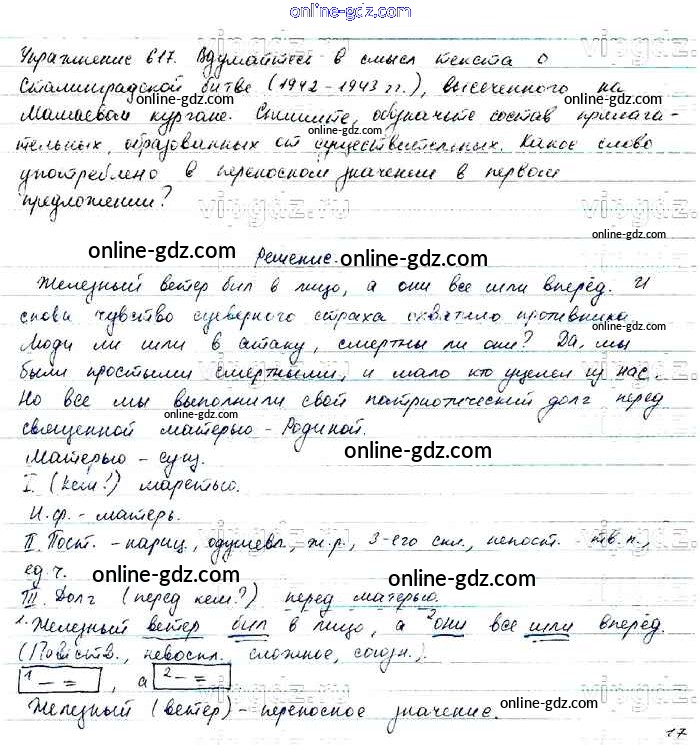 online-gdz.com
Упражнение 617. Вдумайтесь в смысл текста о
online-gdz.com
Сталинградской битве (1942-1943 гг.), высеченного на
online-gdz.com
Мамаевом кургане. Спишите, обозначьте состав прилага-
online-gdz.com
тельных, образованных от существительных. Какое слово
употреблено в переносном значении в первом
online-gdz.com
предложении?
vipgdz.ru
online-gdz.com
online-gdz.com Решение. online-gdz.com
Железный ветер бил в лицо, а они все шли вперёд. И
снова чувство суеверного страха охватило противника.
online-gdz.com
Люди ли шли в атаку, смертны ли они? Да, мы
были простыми смертными, и мало кто уцелел из нас.
online-gdz.com
Но все мы выполнили свой патриотический долг перед
online-gdz.com
священной матерью - Родиной.
Матерью - сущ. online-gdz.com online-gdz.com
I. (Кем?)
И.ф. - матерь.
vipgdz.ru
II. Пост. - нариц., одушевл., ж.р., 3-его скл., непост. - тв.п.,
ед.ч. online-gdz.com online-gdz.com
III. Долг (перед кем?) перед матерью.
1. Железный ветер бил в лицо, а 2 они все шли вперёд.
online-gdz.com
(Повеств., невоскл., сложное, союзн.).
1 - = , а 2 - = online-gdz.com
Железный (ветер) - переносное значение.
online-gdz.com
17